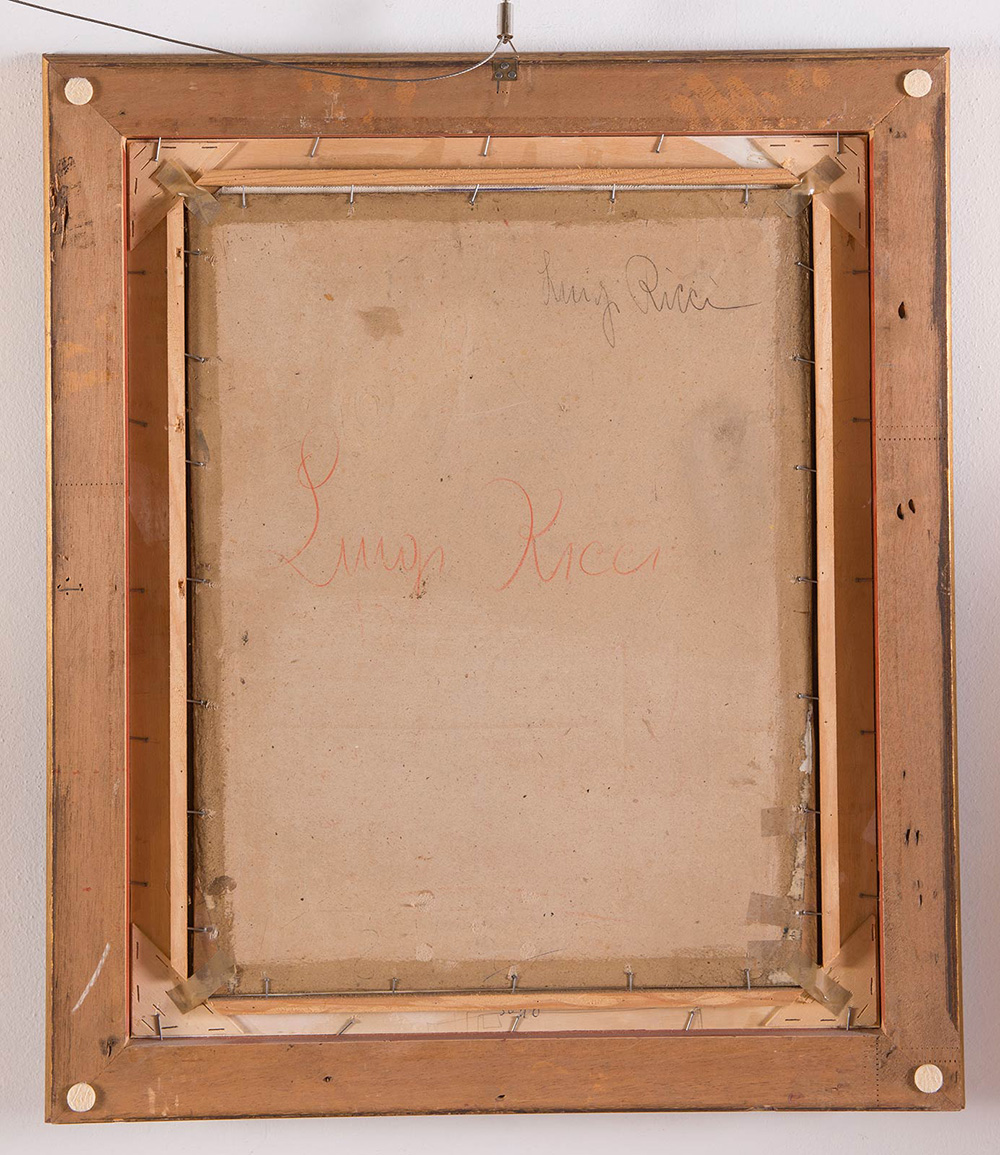 Luigi Ricci
Luigi Ricci